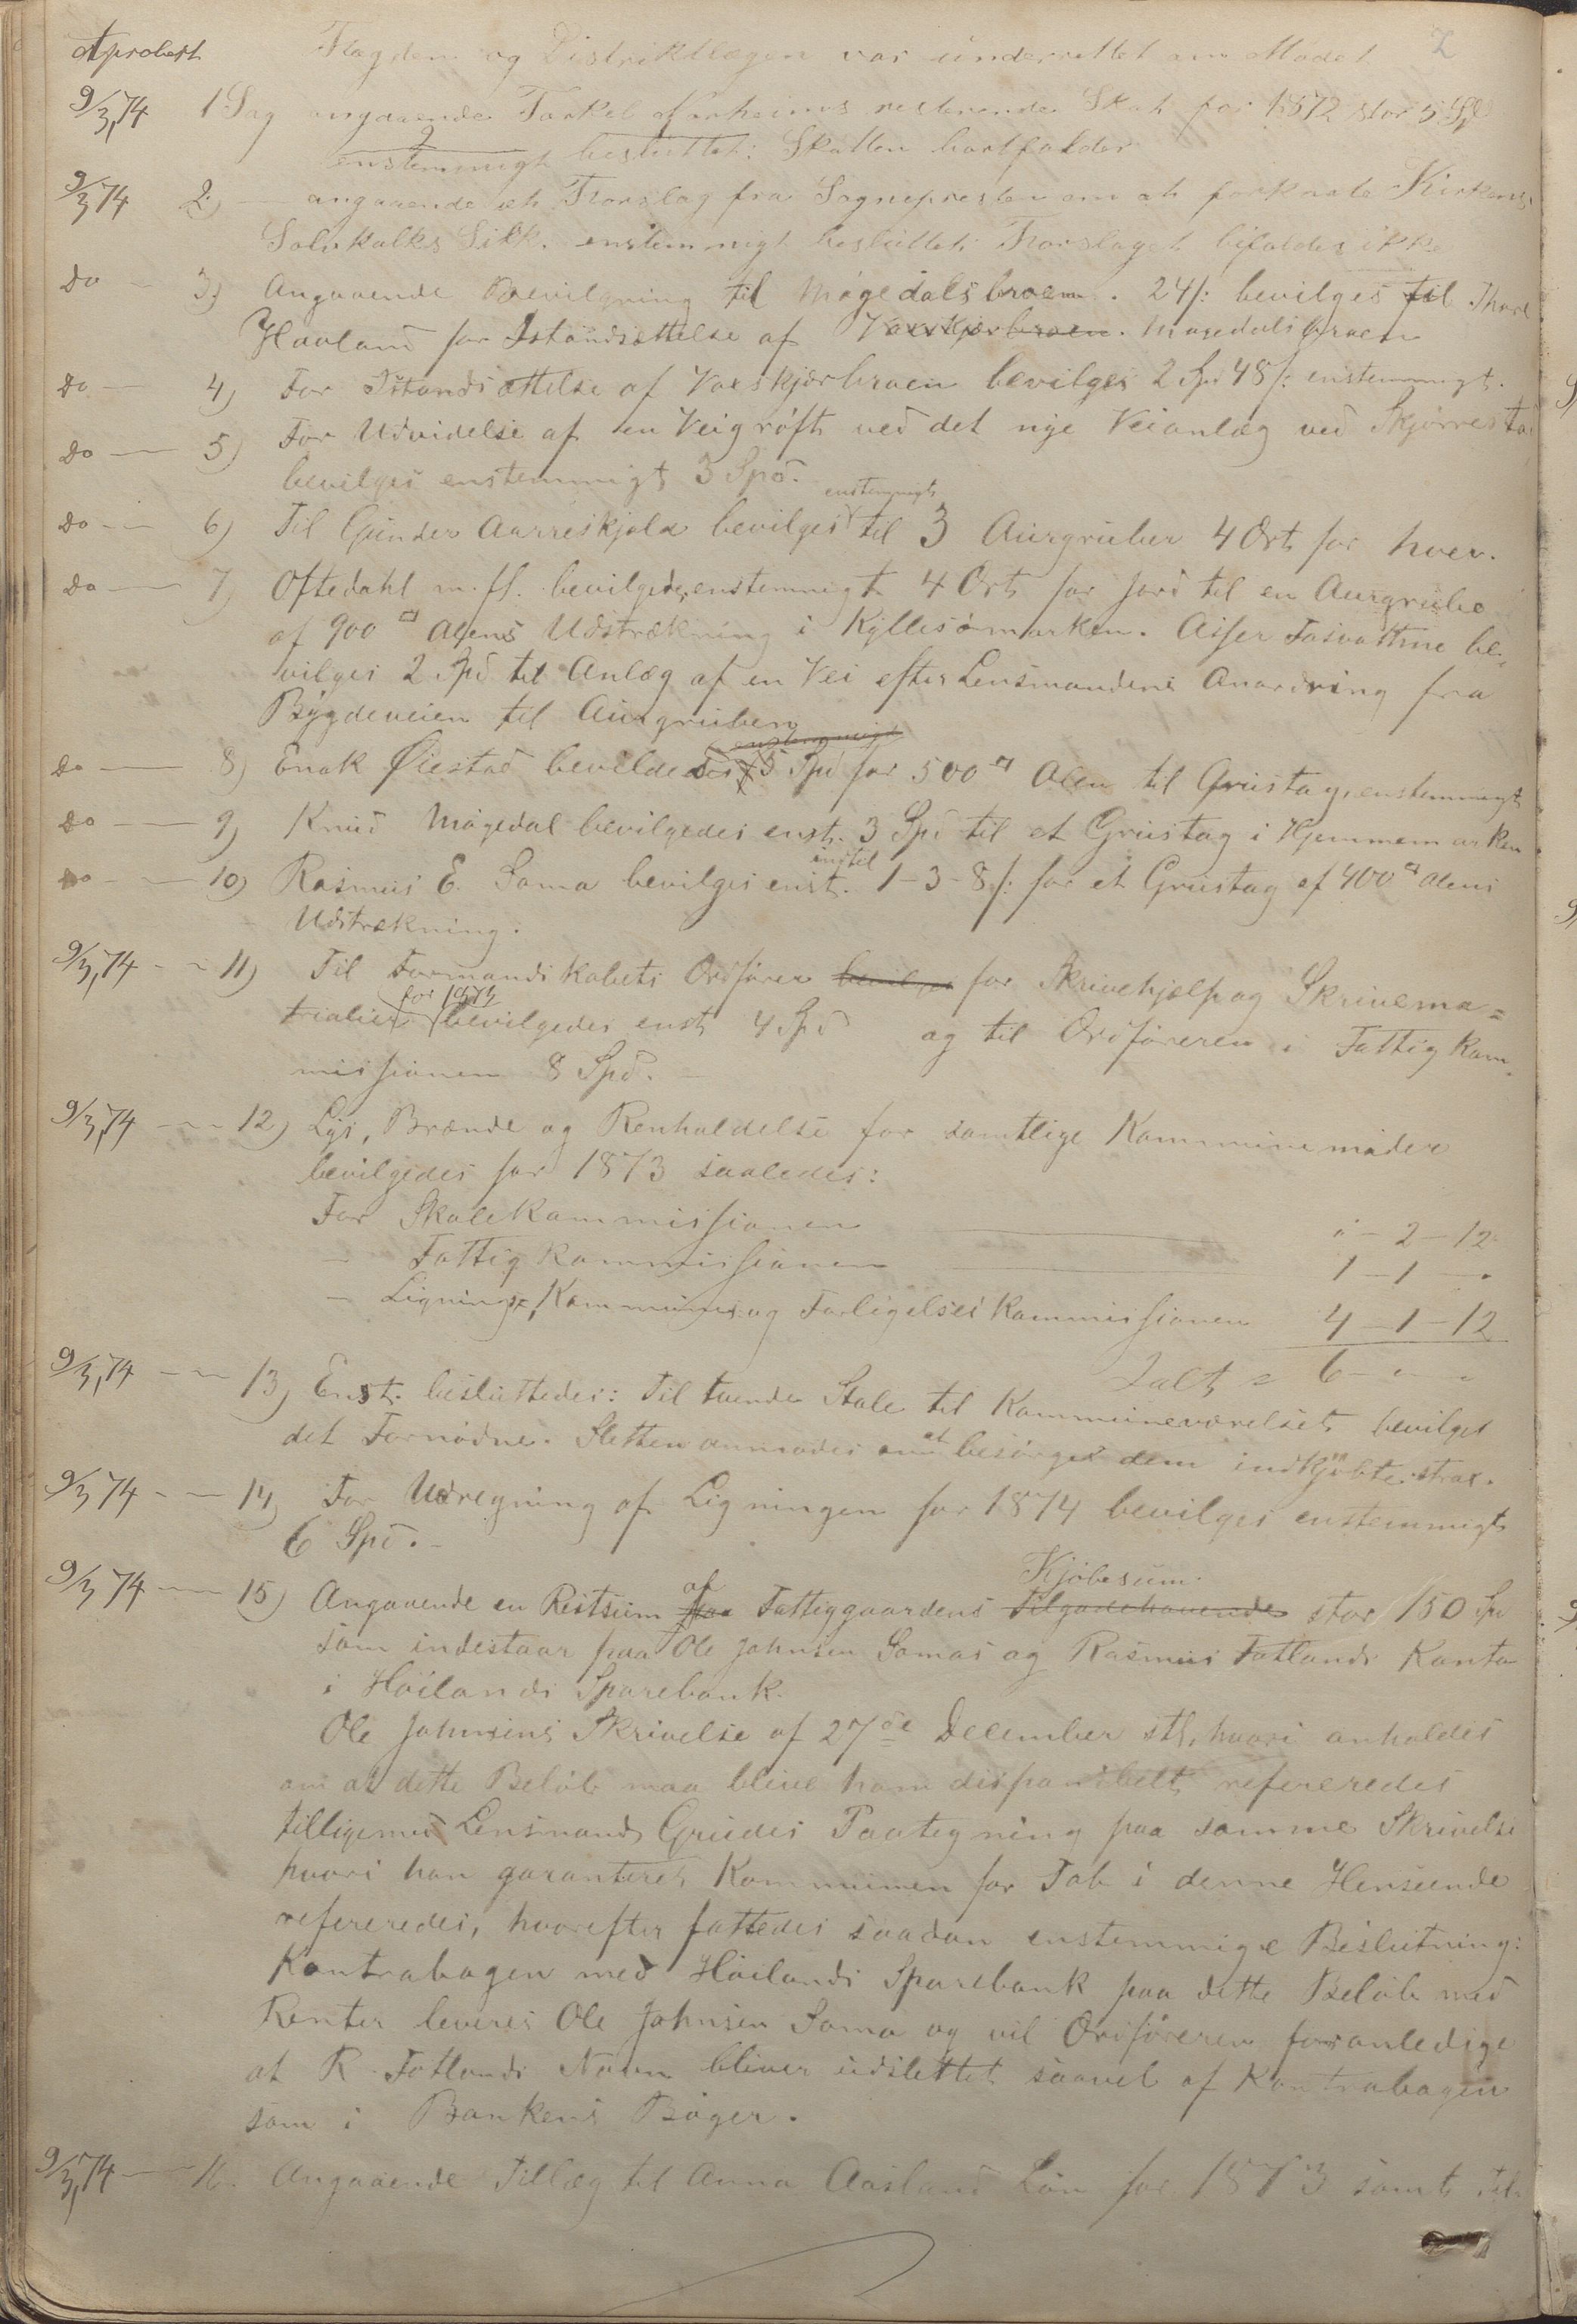 Aprobert Flagden og Distriktlægen var underrettet om Mødet 2
9/3,74 1 Sag angaaende Torkel resterende Skat for 1872 stor 5 Spd
enstemmigt besluttet: Skatten bortfalder
9/3 74 2) — angaaende et Forslag fra Sognepresten om at Kirkens
Sølvkalks enstemmigt besluttet: Forslaget bifaldes ikke
Do — 3) Angaaende Bevilgning til Møgedalsbroen. 24 /: bevilges til
Haaland for Istandsættelse af Vaxskjærbroen. Møgedalsbroen
Do — 4) For Istandsættelse af Vaxskjærbroen bevilges 2 Spd 48 /: enstemmigt.
Do — 5) For Udvidelse af en Veigrøft ved det nye Veianlæg ved Skjørrestad
bevilges enstemmigt 3 Spd.
Do — 6) Til Gunder Aarreskjold bevilges enstemmigt til 3 Aurgruber 4 Ort for hver.
Do — 7) Oftedahl m. fl. bevilgedes enstemmigt 4 Ort for Jord til en Aurgrube
af 900 □ Alens Udstrækning i Kyllesömarken. Asser be-
vilges 2 Spd til Anlæg af en Vei efter Lensmandens Anordning fra
Bygdeveien til Aurgruben
Do — 8) Enok Øiestad bevildedes enstemmigt 5 Spd for 500 □ Alen til Grustag, enstemmigt
Do — 9) Knud Møgedal bevilgedes enst. 3 Spd til et Grustag i Hjemmemarken
Do — 10) Rasmus E. Soma bevilges enst. indtil 1-3-8 /: for et Grustag af 400 □ Alens
Udstrækning.
9/3,74 — 11) Til Formandskabets Ordfører bevilges for Skrivehjelp og Skrivema=
trialier for 1873 bevilgedes enst. 4 Spd og til Ordføreren i Fattigkom-
missionen 8 Spd.
9/3,74 — 12) Lys, Brænde og Renholdelse for samtlige Kommunemøder
bevilgedes for 1873 saaledes:
For Skolekommissionen " - 2 - 12
— Fattigkommissionen 1 - 1 - "
— Lignings, Kommune og Forligelseskommissionen 4 - 1 - 12
Ialt = 6 - " - "
9/3,74 — 13) Enst. besluttedes: Til tvende Stole til Kommuneværelset bevilges
det Fornødne. Sletten anmodes om at besørge dem indkjøbte strax.
9/3 74 — 14) For Udregning af Ligningen for 1874 bevilges enstemmigt
6 Spd. —
9/3 74 — 15) Angaaende en Restsum af Fattiggaardens tilgodehavende Kjøbesum stor 150 Spd
som indestaar paa Ole Johnsen Somas og Rasmus Fotlands Konto
i Høilands Sparebank.
Ole Johnsens Skrivelse af 27de December stl, hvori anholdes
om at dette Beløb maa blive ham disponibelt, refereredes
tilligemed Lensmand Grudes Paategning paa samme Skrivelse
hvori han garanterer Kommunen for Tab i denne Henseende
refereredes, hvorefter fattedes saadan enstemmige Beslutning:
Kontrabogen med Høilands Sparebank paa dette Beløb med
Renter leveres Ole Johnsen Soma og vil Ordføreren foranledige
at R. Fotlands Navn bliver udslettet saavel af Kontrabogen
som i Bankens Bøger.
9/3,74 — 16. Angaaende Tillæg til Anna Aaslands Løn for 1873 samt til